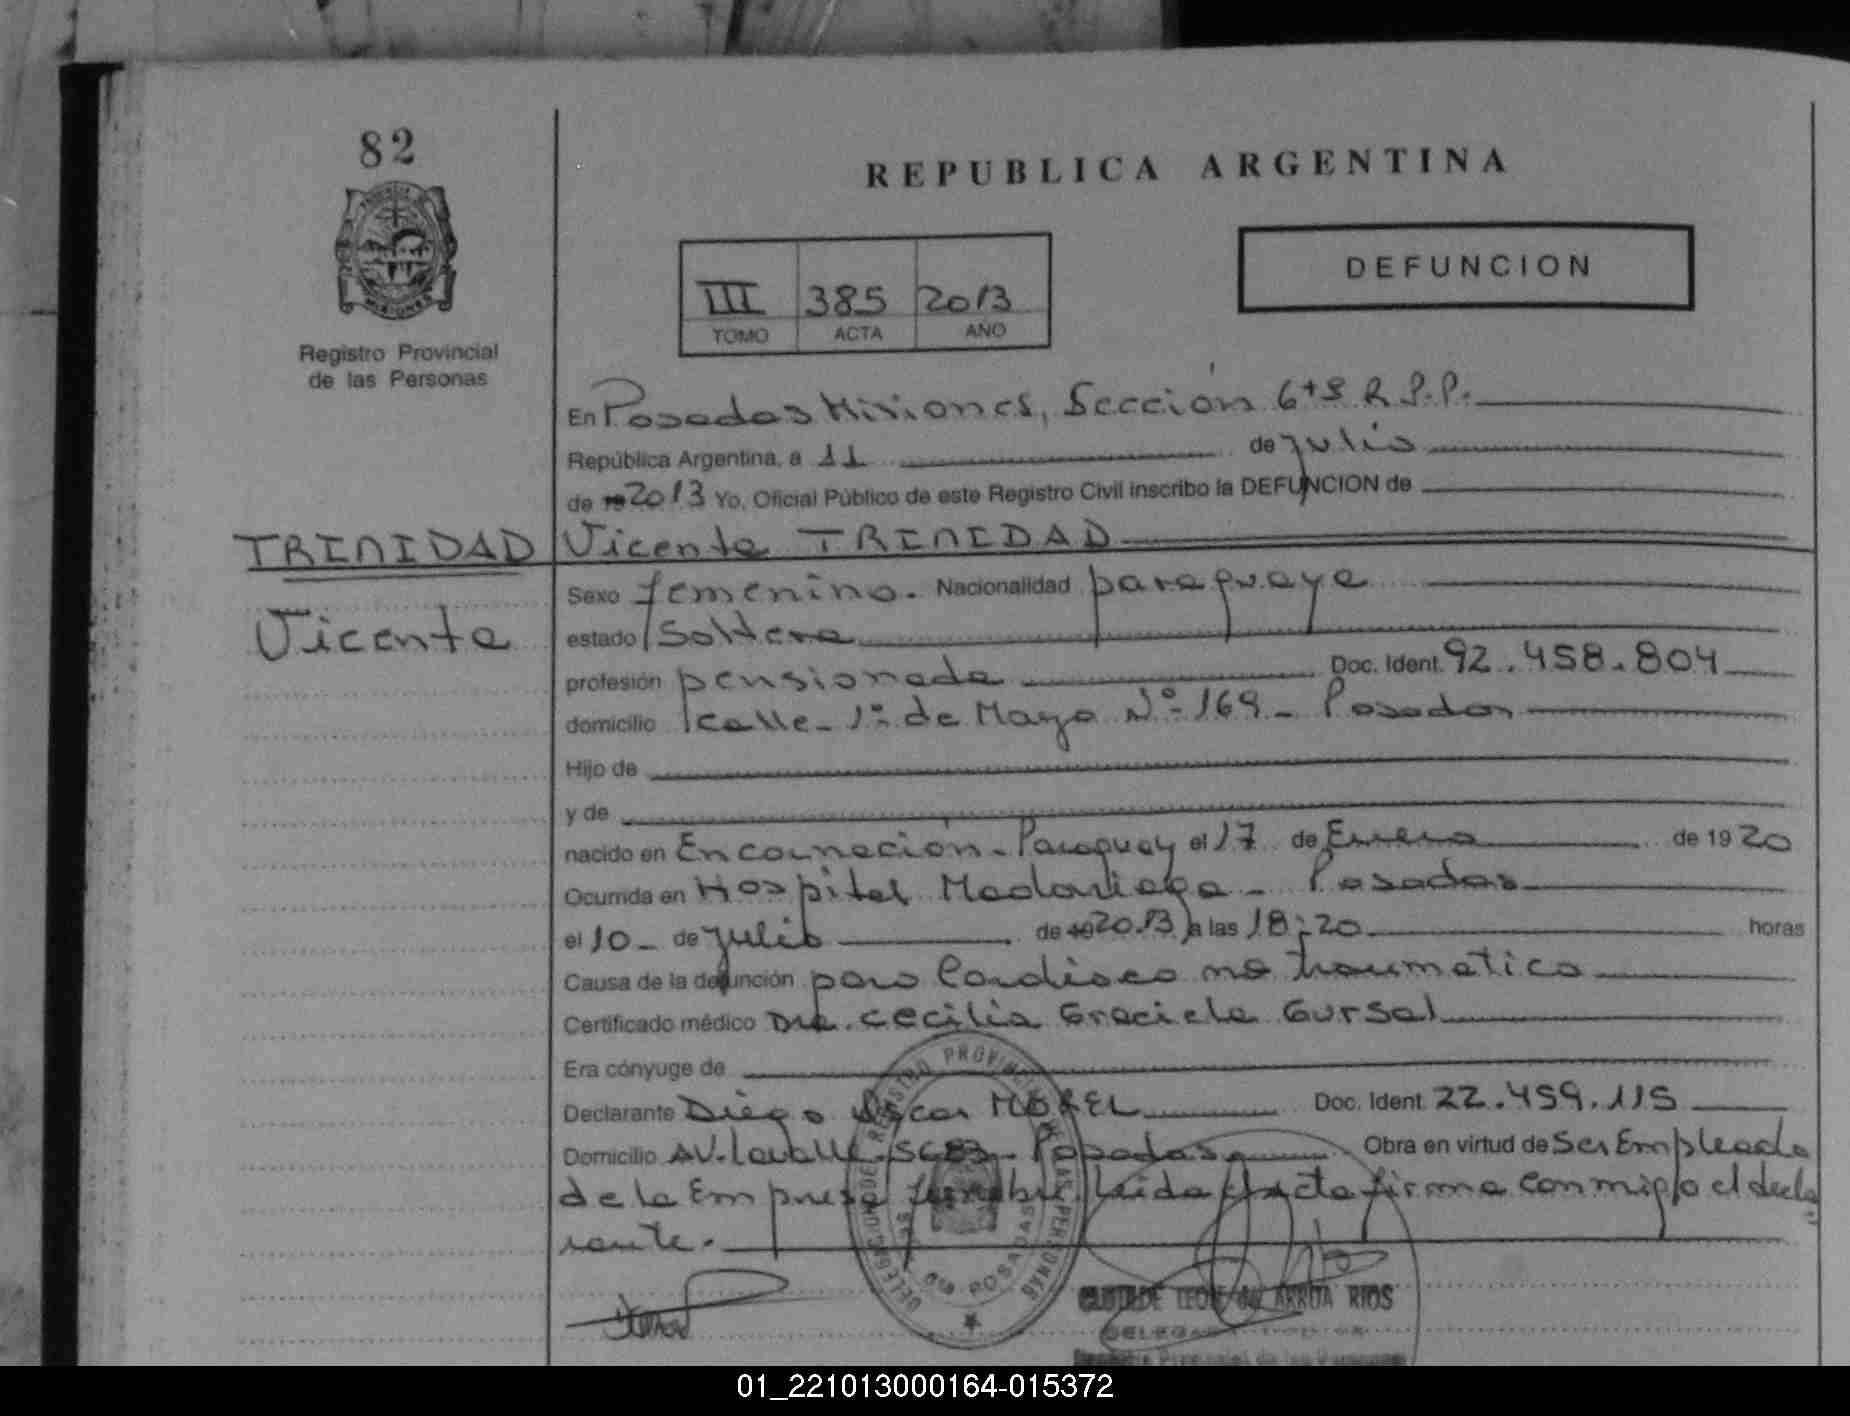 82
REPUBLICA ARGENTINA
DEFUNCION
III 385 2013
TOMO ACTA AÑO
Registro Provincial
de las Personas
En Posadas Misiones, Sección 6ta R.P.P.
República Argentina, a 11 de julio
de 19 2013 Yo, Oficial Público de este Registro Civil inscribo la DEFUNCION de
TRINIDAD
Vicenta
Vicenta TRINIDAD
Sexo femenino. Nacionalidad paraguaya
estado soltera
profesión pensionada Doc. Ident. 92.458.804
domicilio calle - 1º de Mayo Nº 169 - Posadas
Hijo de
y de
nacido en Encarnación - Paraguay el 17 de Enero de 1920
Ocurrida en Hospital Madariaga - Posadas
el 10 - de julio de 19 2013 a las 18:20 horas
Causa de la defunción paro Cardiaco no traumatico
Certificado médico Dra. Cecilia Graciela Gursal
Era cónyuge de
Declarante Diego Oscar MOREL Doc. Ident. 22.459.115
Domicilio AV. Lavalle 5683 - Posadas Obra en virtud de Ser Empleado
de la Empresa funebre. Leida el acta firma conmigo el decla
rante.
DELEGACION DE REGISTRO PROVINCIAL DE LAS PERSONAS
6ta POSADAS
ARRUA RIOS
Registro Provincial de las Personas
01_221013000164-015372